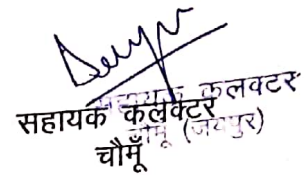 सहायक कलक्टर
चौमू (जयपुर)
सहायक कलेक्टर
चौमूँ